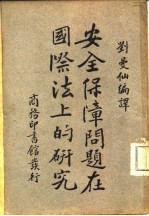 劉曼仙編譯
安全保障問題在
國際法上的研究
商務印書館發行